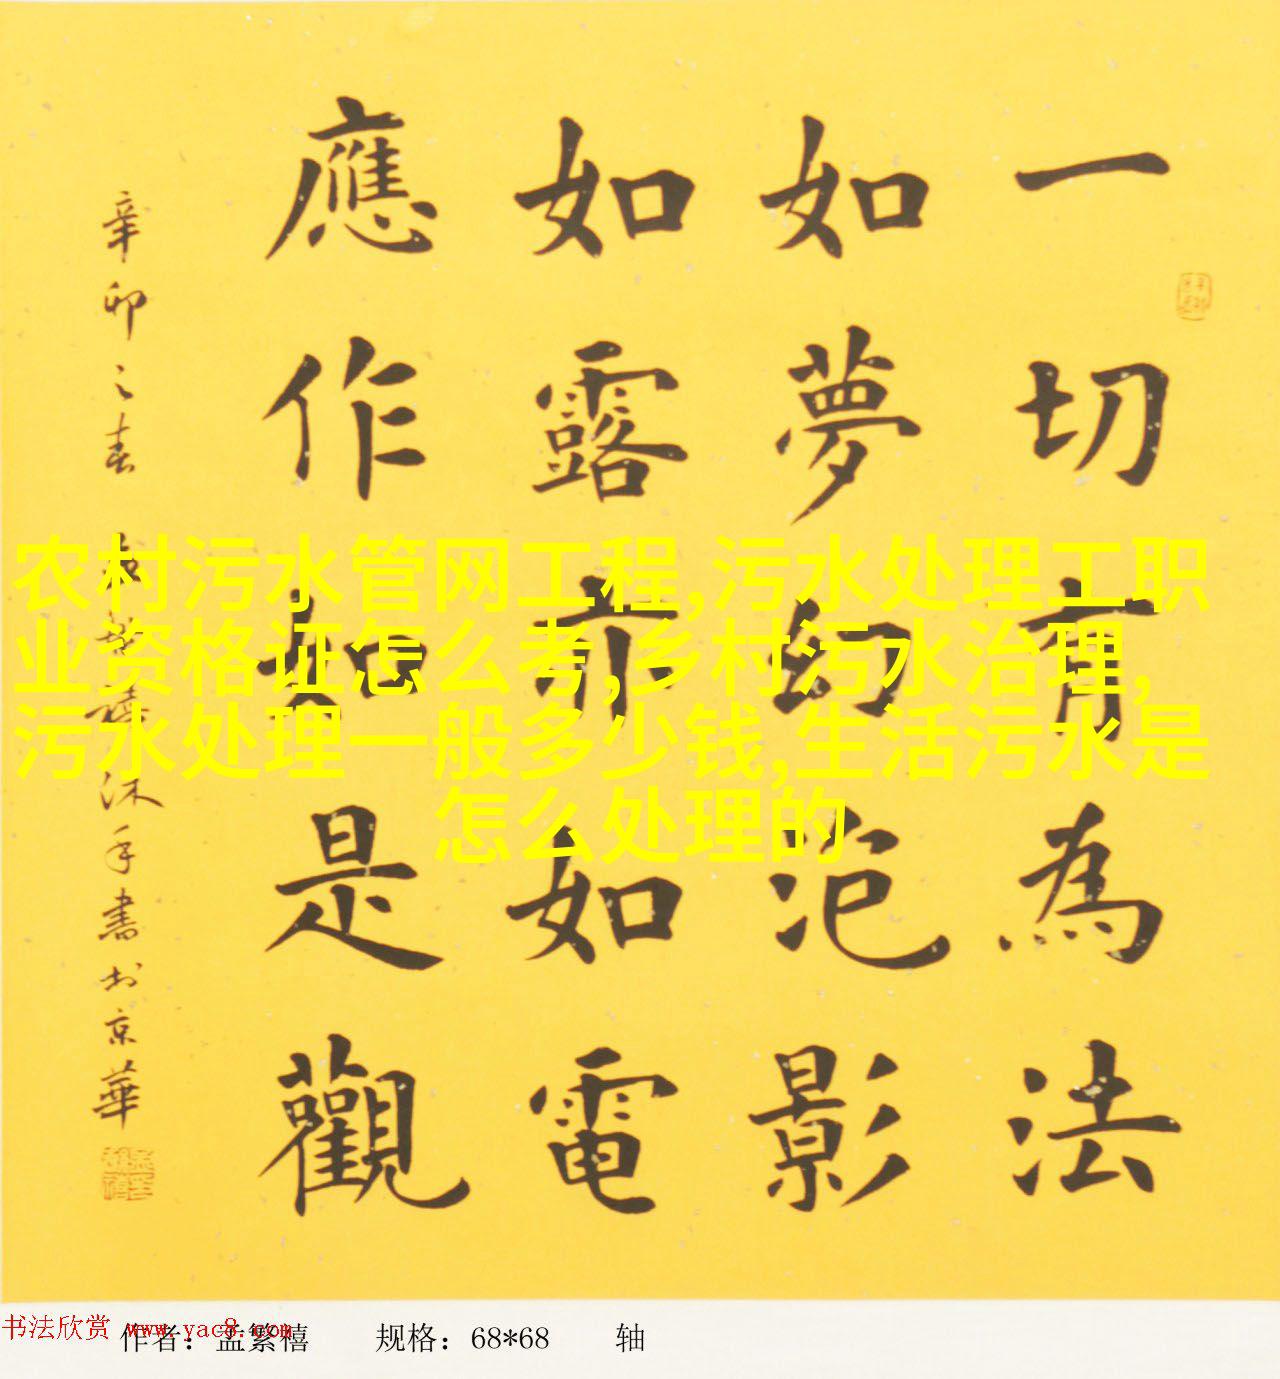 一切有為法
如夢幻泡影
如露亦如電
應作如是觀
辛卯之春 孟繁禧沐手書於京華
农村污水管网工程,污水处理工职
业资格证怎么考,乡村污水治理,
污水处理一般多少钱,生活污水是
怎么处理的
书法欣赏 www.yac8.com
作者：孟繁禧 规格：68*68 轴